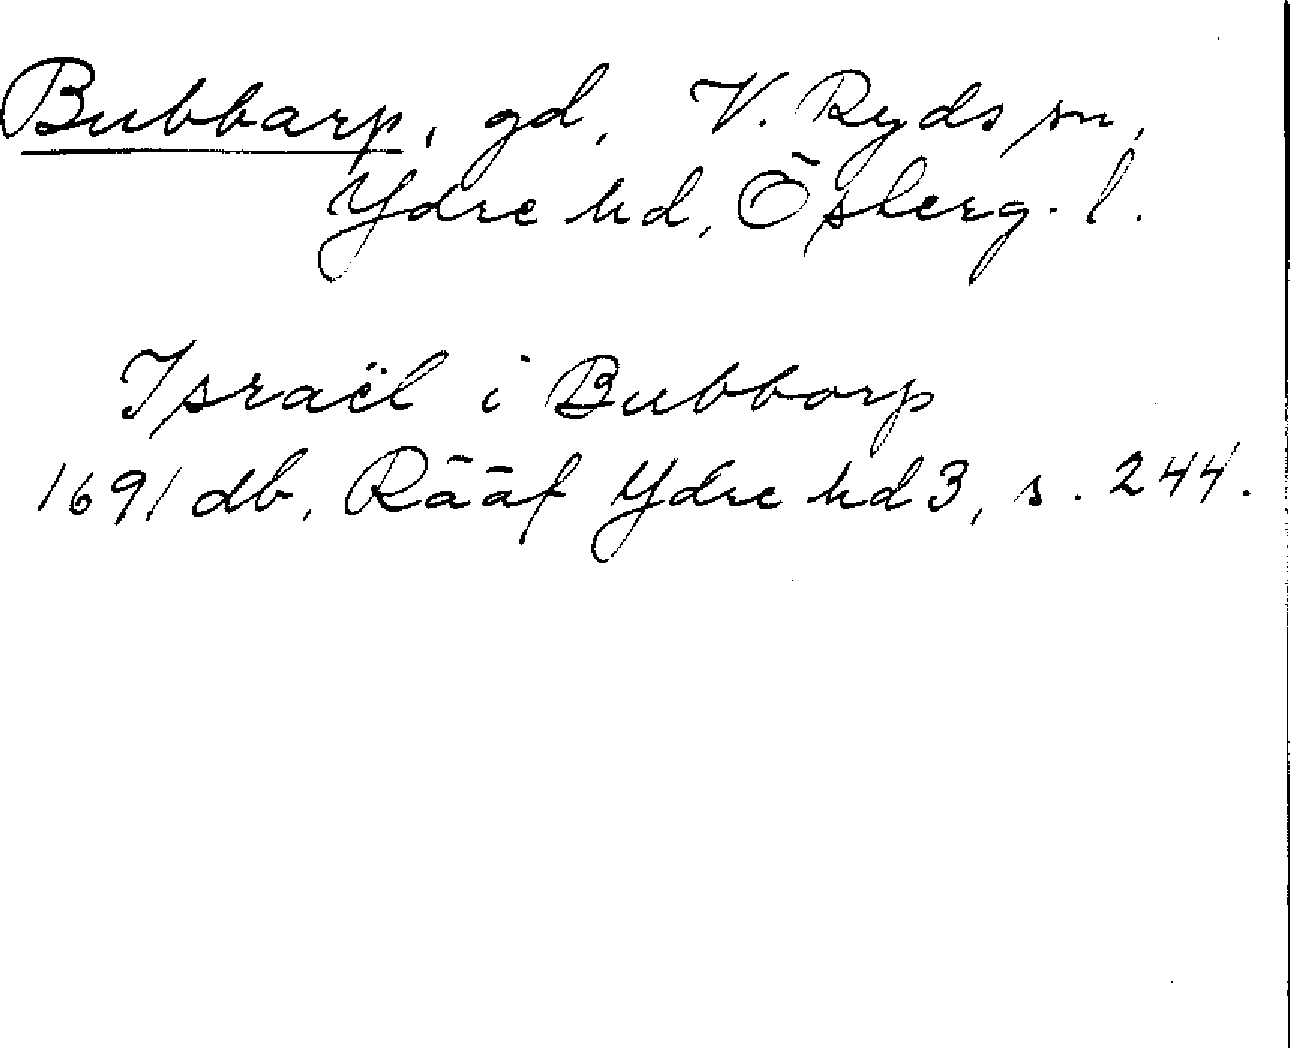 Bubbarp, gd, V. Ryds sn,
Ydre hd, Österg. l.
Israël i Bubborp
1691 db, Rääf Ydre hd 3, s. 244.